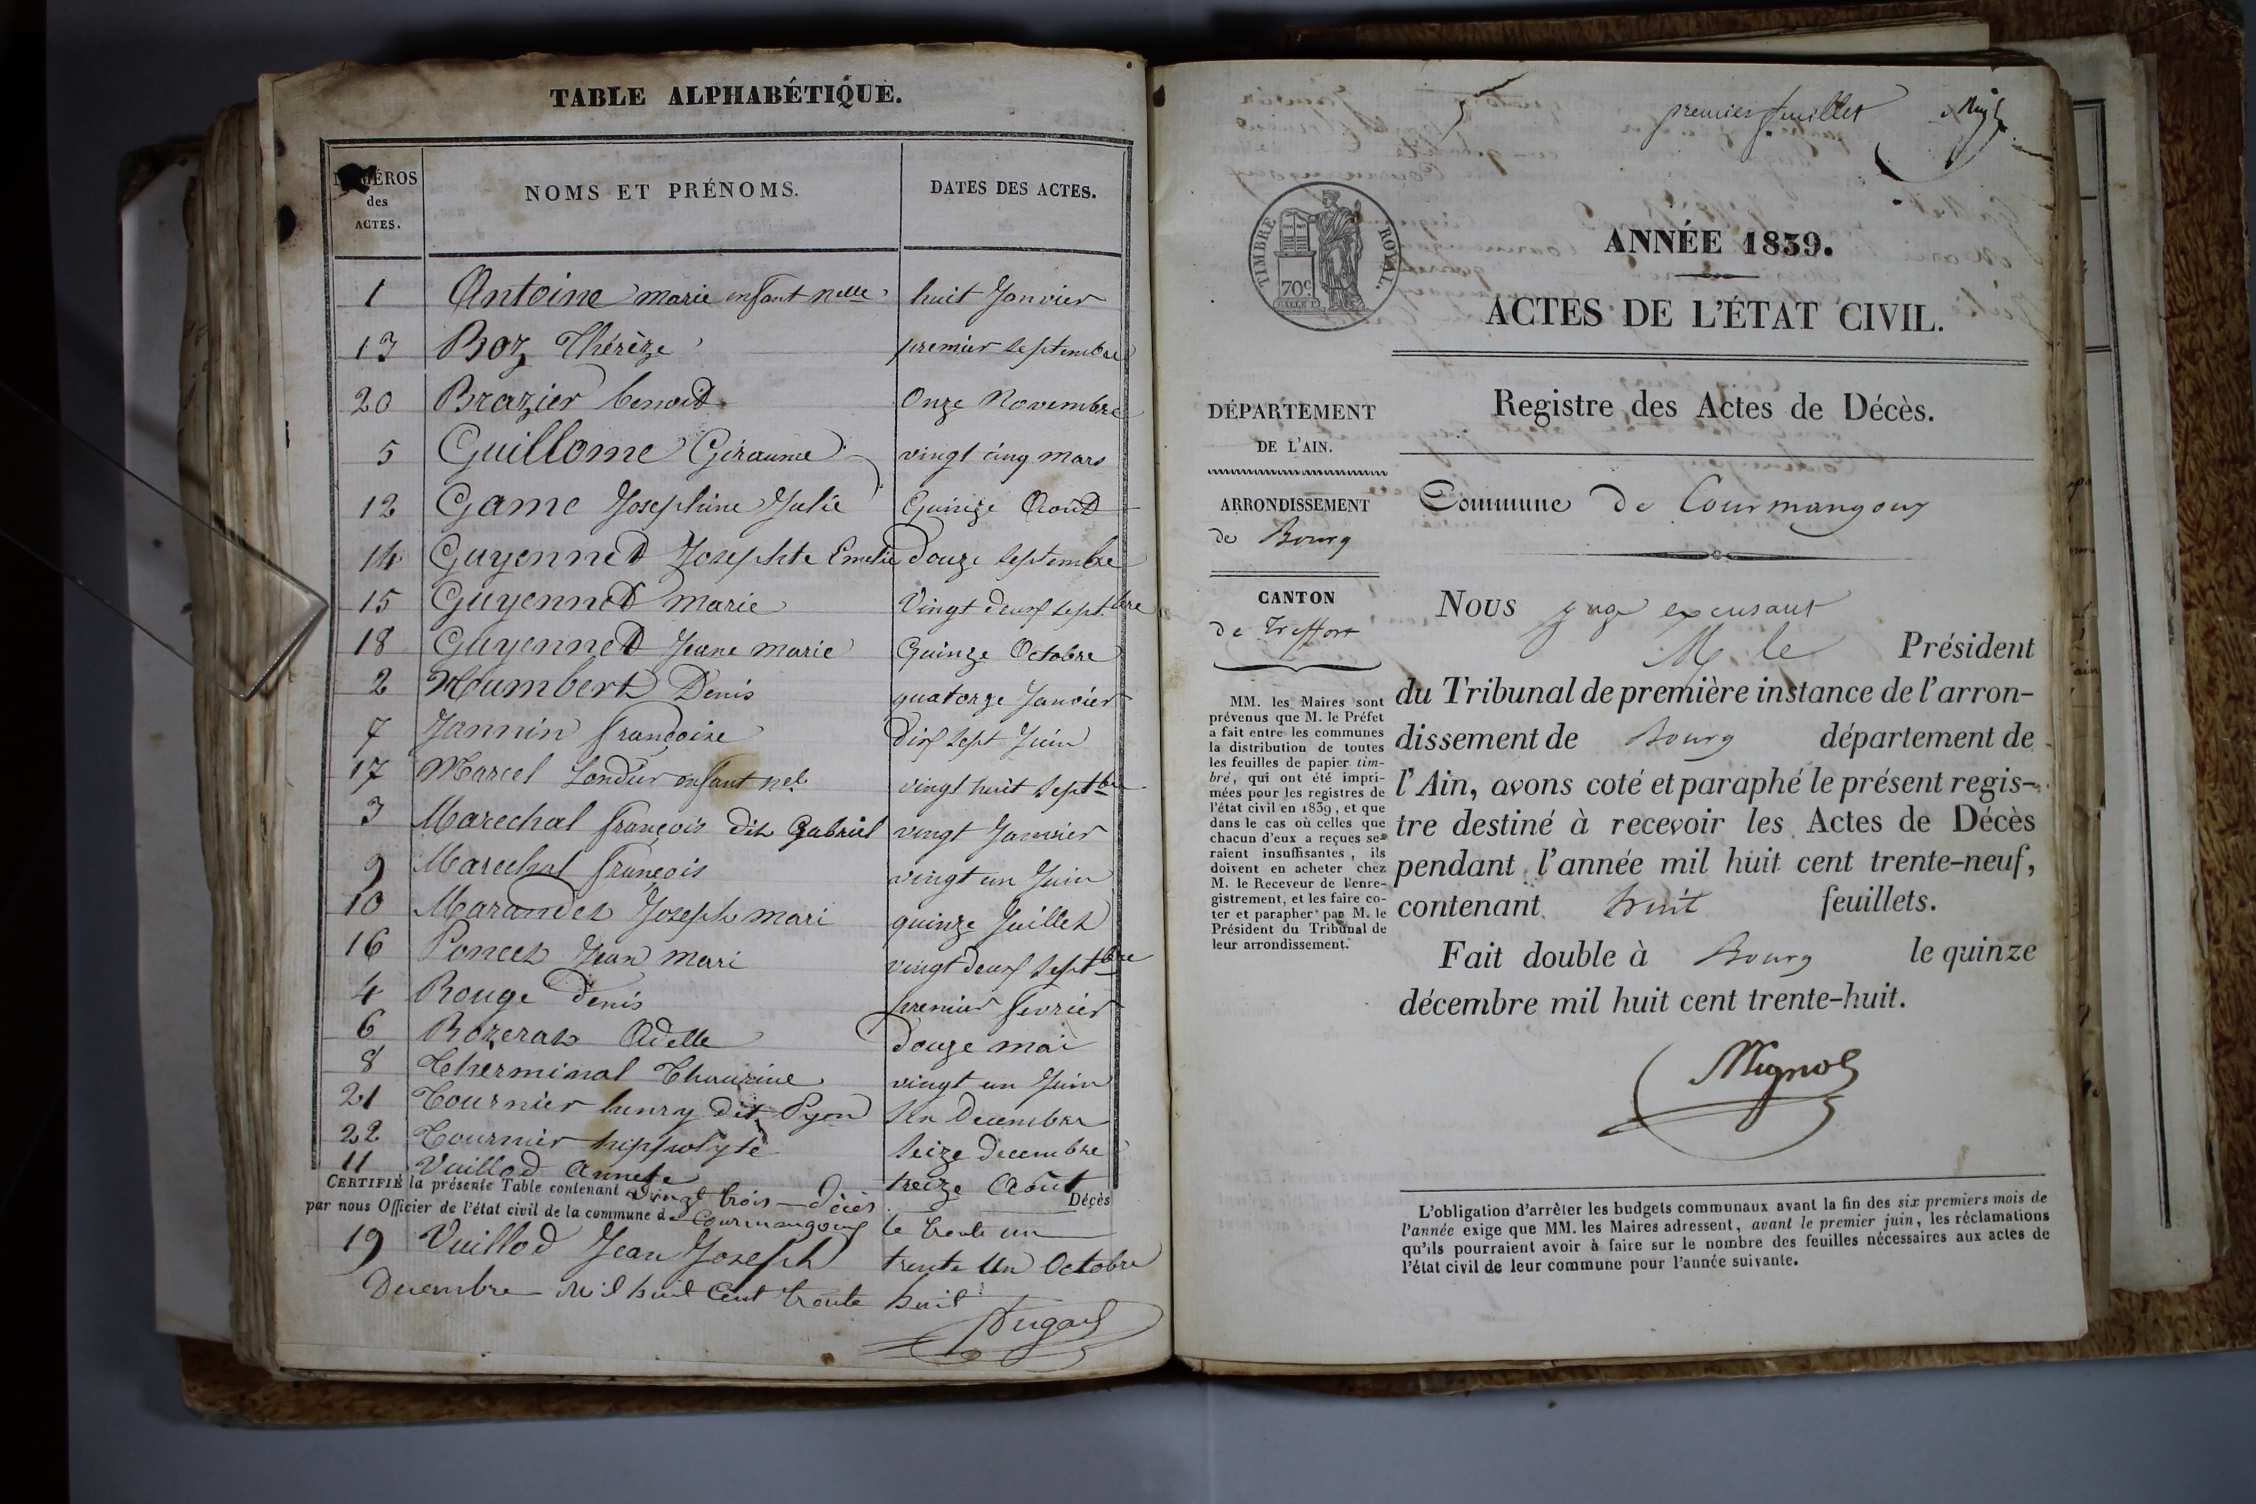 TABLE ALPHABÉTIQUE.
NUMÉROS des ACTES. NOMS ET PRÉNOMS. DATES DES ACTES.
1 Antoine marie enfant nelle huit Janvier
13 Boz Thérèze premier septembre
20 Brazier benoit Onze Novembre
5 Guillome Géraume vingt cinq mars
12 Game Josephine Julie Quinze Août
14 Guyennet Josephte Emelie Douze septembre
15 Guyennet marie Vingt deux septbre
18 Guyennet Jeane marie Quinze Octobre
2 Humbert Denis quatorze Janvier
7 Jannin francoise Dix sept Juin
17 Marcel enfant nel. vingt huit septbre
3 Marechal françois dit Gabriel vingt Janvier
9 Marechal françois vingt un Juin
10 Marandet Joseph mari quinze Juillet
16 Poncet Jean mari vingt deux septbre
4 Rouge Denis premier fevrier
6 Rozerat Adelle Douze mai
8 Therminal vingt un Juin
21 Tournier henry dit Pyon Decembre
22 Tournier hippolyte Seize Decembre
11 Vuillod Annete treize Août
CERTIFIÉ la présente Table contenant vingt trois décès Décès
par nous Officier de l'état civil de la commune de Courmangoux le trente un
19 Vuillod Jean Joseph trente un Octobre
Decembre mil huit Cent trente huit
premier feuillet
TIMBRE ROYAL.
70c
ANNÉE 1839.
ACTES DE L'ÉTAT CIVIL.
Registre des Actes de Décès.
Commune de Courmangoux
DÉPARTEMENT
DE L'AIN.
ARRONDISSEMENT
de Bourg
CANTON
de Treffort
MM. les Maires sont
prévenus que M. le Préfet
a fait entre les communes
la distribution de toutes
les feuilles de papier tim-
bré, qui ont été impri-
mées pour les registres de
l'état civil en 1839, et que
dans le cas où celles que
chacun d'eux a reçues se-
raient insuffisantes, ils
doivent en acheter chez
M. le Receveur de l'enre-
gistrement, et les faire co-
ter et parapher par M. le
Président du Tribunal de
leur arrondissement.
NOUS juge excusant
M. le Président
du Tribunal de première instance de l'arron-
dissement de Bourg département de
l'Ain, avons coté et paraphé le présent regis-
tre destiné à recevoir les Actes de Décès
pendant l'année mil huit cent trente-neuf,
contenant huit feuillets.
Fait double à Bourg le quinze
décembre mil huit cent trente-huit.
L'obligation d'arrêter les budgets communaux avant la fin des six premiers mois de
l'année exige que MM. les Maires adressent, avant le premier juin, les réclamations
qu'ils pourraient avoir à faire sur le nombre des feuilles nécessaires aux actes de
l'état civil de leur commune pour l'année suivante.